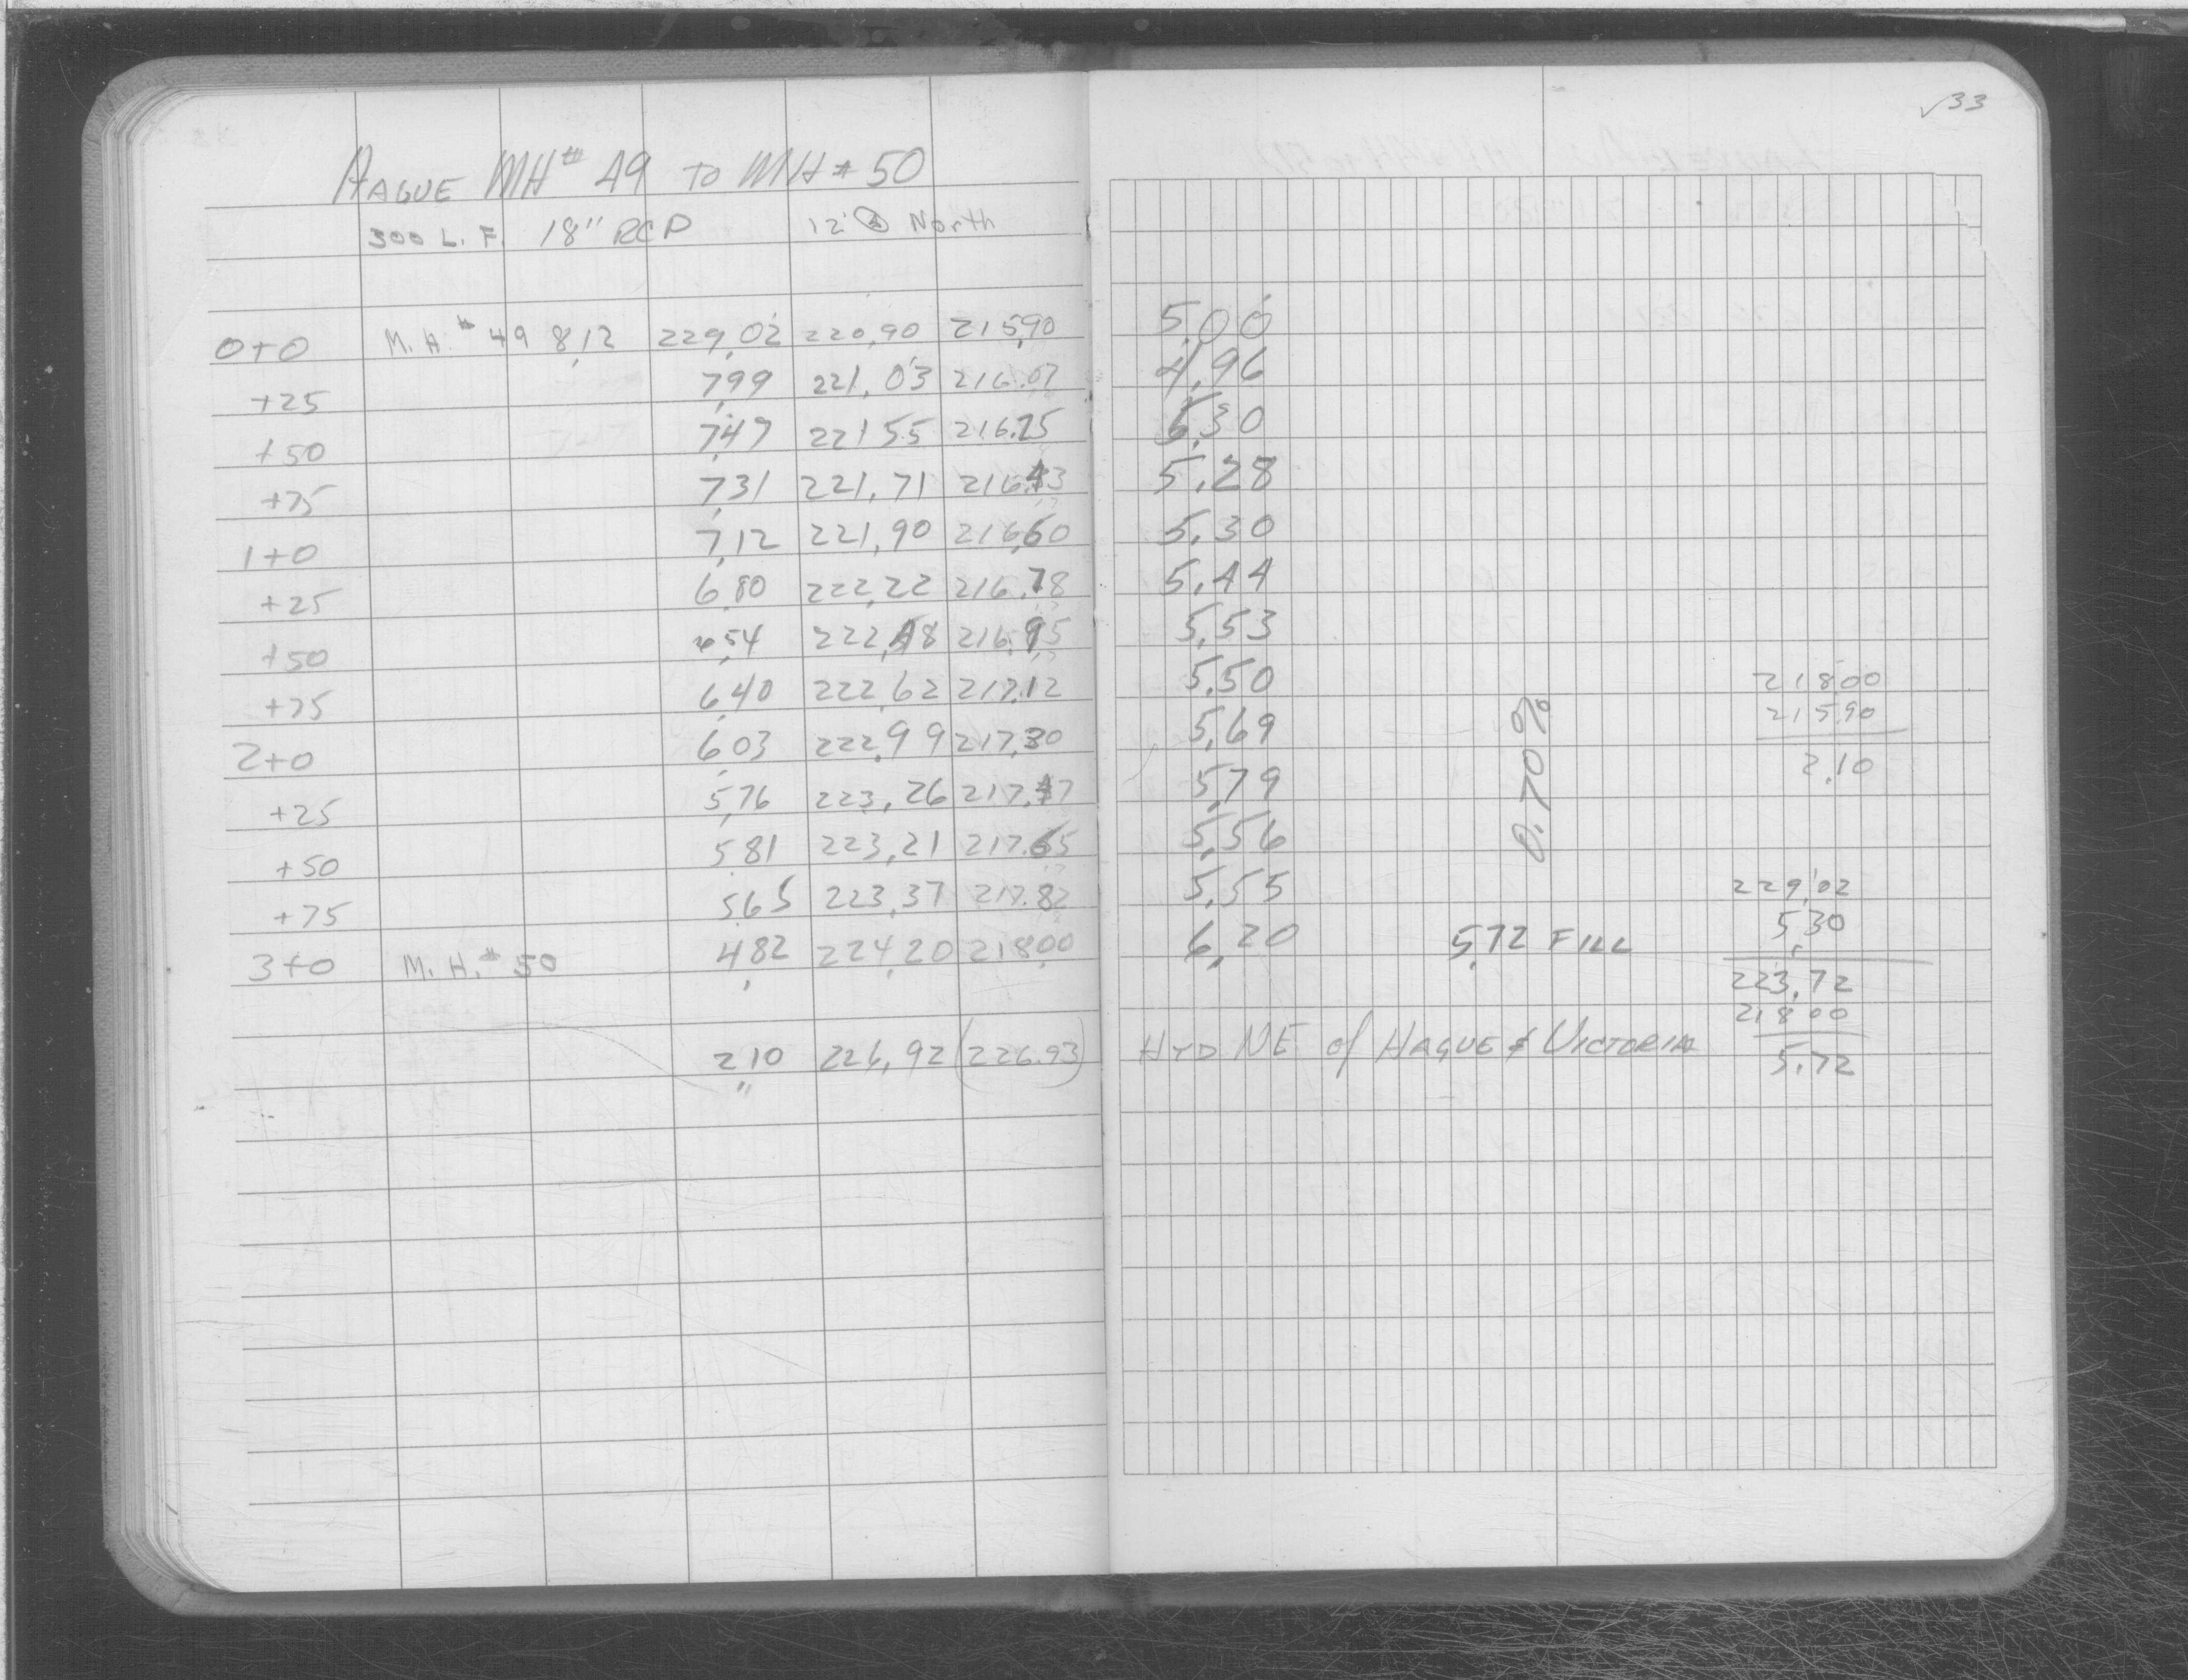 √33
HAGUE MH# 49 TO MH # 50
300 L. F. 18" RCP 12' North
0+0 M. H. # 49 8,12 229,02 220,90 215,90 5,00
+25 7,99 221,03 216.07 4,96
+50 7,47 221 55 216.25 5,30
+75 7,31 221,71 216.43 5,28
1+0 7,12 221,90 216,60 5,30
+25 6,80 222,22 216.78 5,44
+50 6,54 222,48 216.95 5,53
+75 6,40 222,62 217.12 5,50
2+0 6,03 222,99 217,30 5,69
+25 5,76 223,26 217,47 5,79
+50 5,81 223,21 217.65 5,56
+75 5,65 223,37 217.82 5,55
3+0 M. H. # 50 4,82 224,20 218,00 6,20 5,72 FILL
2,10 226,92 (226.93) HYD NE of HAGUE & VICTORIA
0.70%
218,00
215,90
2,10
229,02
5,30
223,72
218 00
5,72